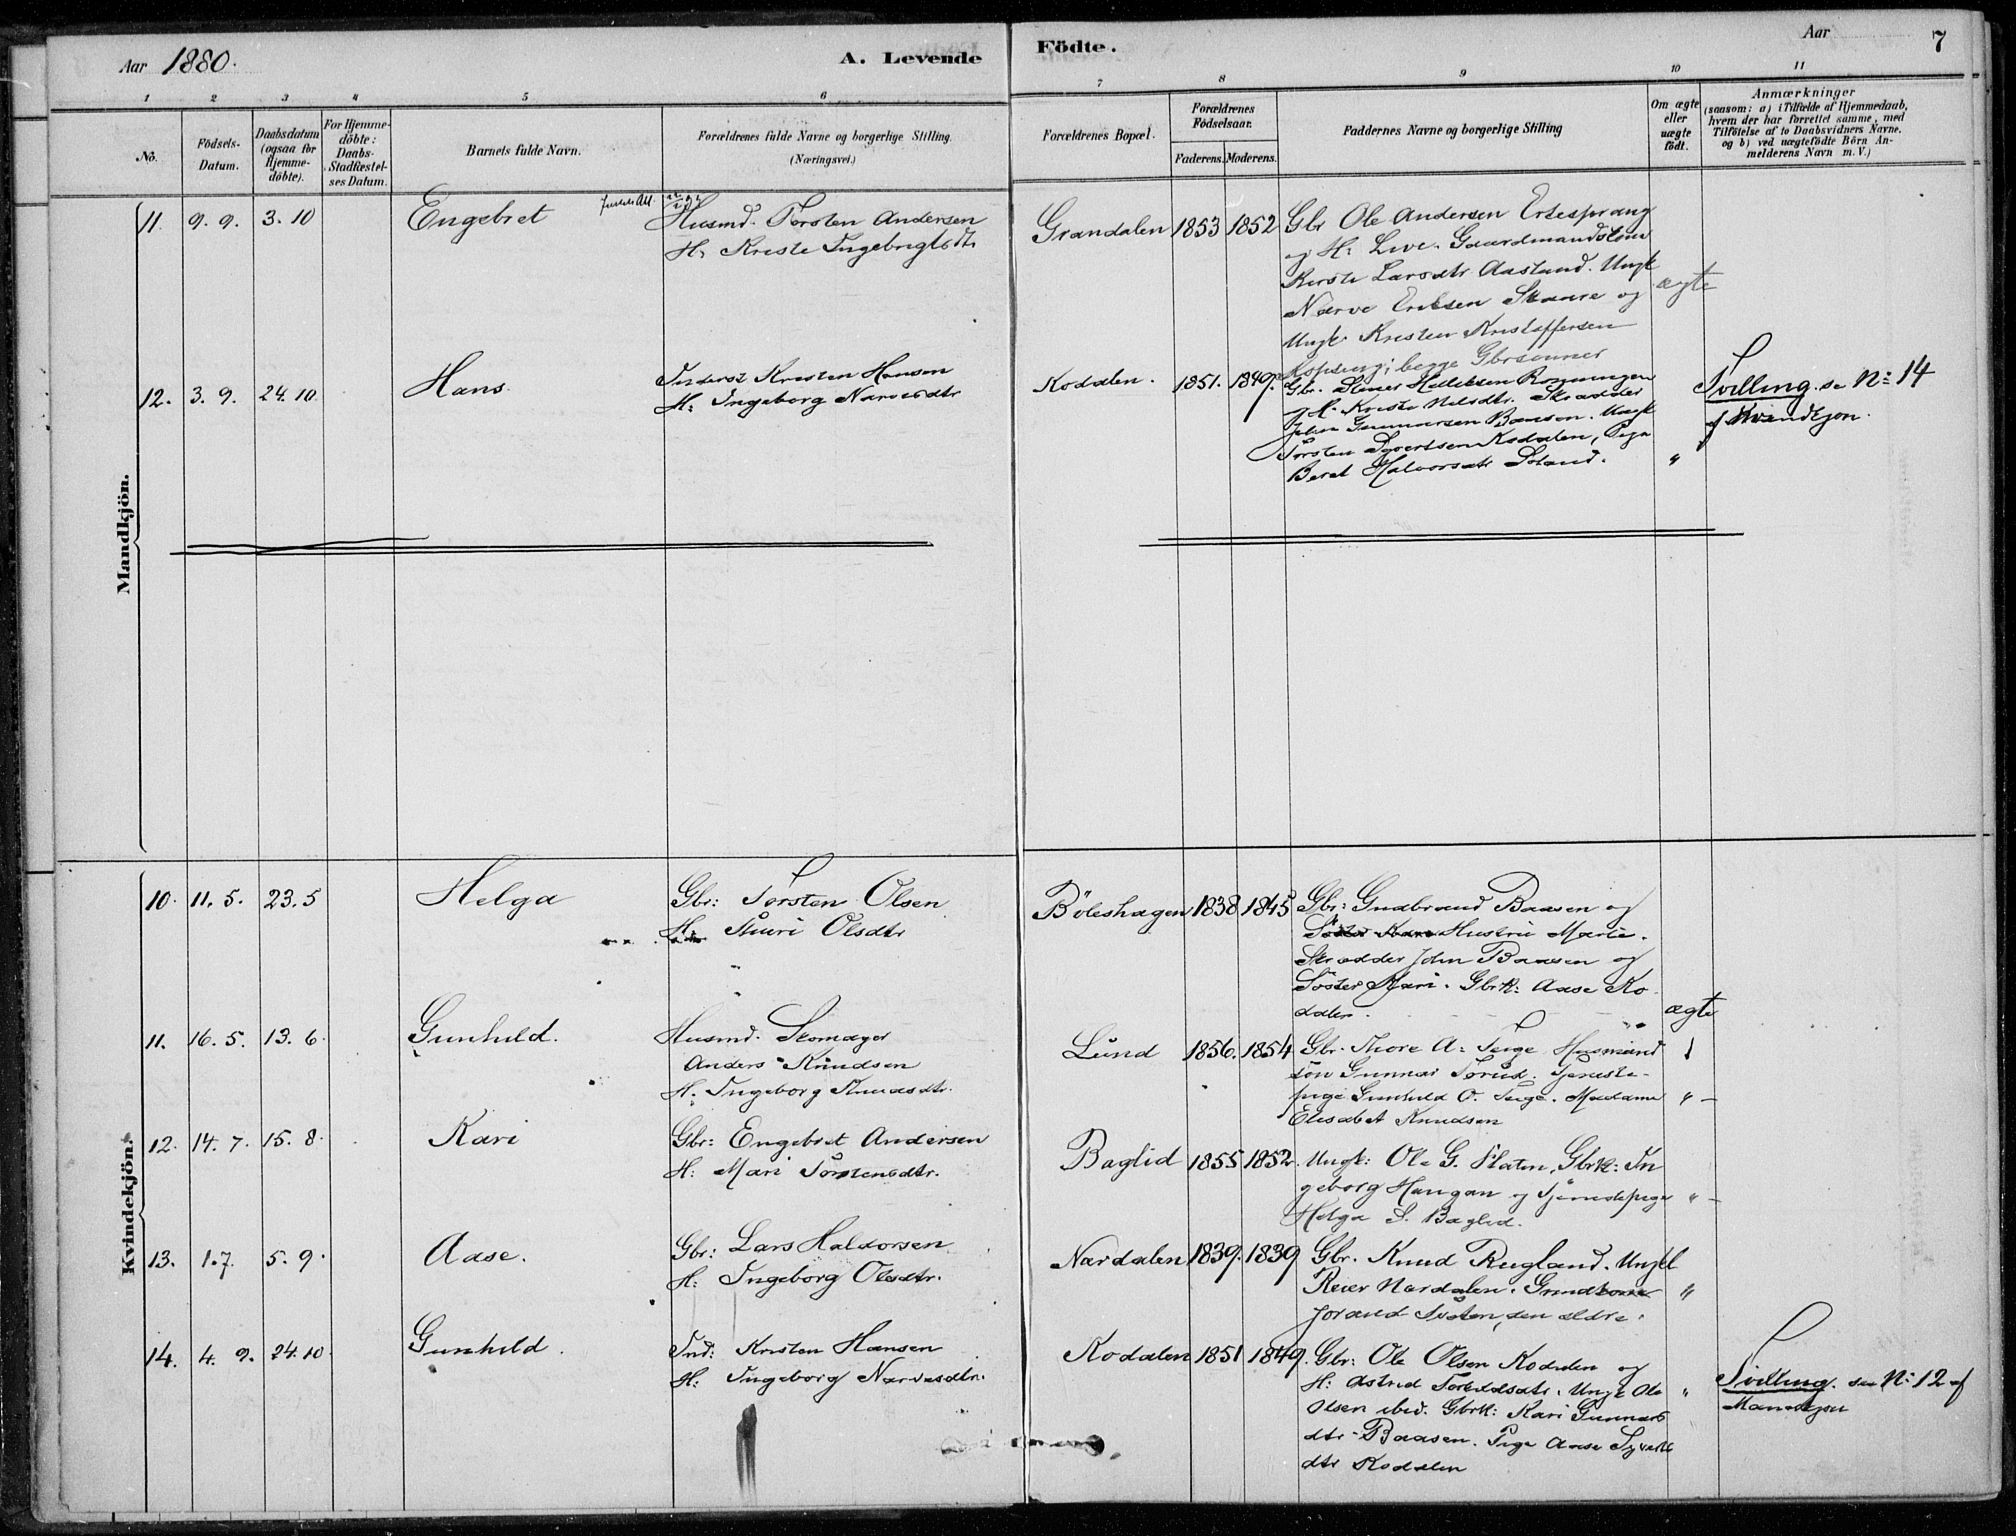 Aar 1880.
A. Levende
Födte.
Aar
7
1 2 3 4 5 6 7 8 9 10 11
No.
Födsels-Datum.
Daabsdatum (ogsaa for Hjemme-döbte).
For Hjemme-döbte: Daabs-Stadfæstel-ses Datum.
Barnets fulde Navn.
Forældrenes fulde Navne og borgerlige Stilling. (Næringsvei.)
Forældrenes Bopæl.
Forældrenes Födselsaar.
Faderens. Moderens.
Faddernes Navne og borgerlige Stilling
Om ægte eller uægte födt.
Anmærkninger
(saasom: a) i Tilfælde af Hjemmedaab,
hvem der har forrettet samme, med
Tilföielse af to Daabsvidners Navne.
og b) ved uægtefödte Börn An-
melderens Navn m. V.)
Mandkjön.
11. 9. 9. 3. 10 Engebret
Husmd. Torsten Andersen
H. Kirste Ingebrigtsdtr
Grandalen 1853 1852
Gbr Ole Andersen Ertesprang
og H: Live. Gaardmandskone
Kirste Larsdtr Aasland. Ungk
Narve Eriksen Skaare og
Ungk. Kristen Kristoffersen
Kopseng; begge Gbrsønner
ægte
12. 3. 9. 24. 10 Hans.
Inderst Kristen Hansen
H: Ingeborg Narvesdtr
Kodalen. 1851. 1849.
og H. Kirste Nilsdtr. Skrædder
John Gunnarsen Baasen. Ungk
Torsten Syvertsen Kodalen, Pige
Beret Halvorsdtr Soland.
"
Tvilling. se No: 14
af Kvindkjøn.
Kvindekjön.
10. 11. 5. 23. 5 Helga
Gbr: Torsten Olsen
H. Thuri Olsdtr
Böleshagen 1838 1845
Gbr: Gudbrand Baasen og
Hustru Marie.
Skrædder John Baasen og
Søster Mari. Gbrk: Aase Ko
dalen.
ægte
11. 16. 5. 13. 6. Gunhild.
Husmd. Skomager
Anders Knudsen
H. Ingeborg Knudsdtr.
Lund 1856. 1854
Gbr. Thore A: Teige Husmand
søn Gunnar Torud. Tjeneste-
pige Gunhild O. Teige. Madame
Elisabet Knudsen
" -
12. 14. 7. 15. 8. Kari
Gbr: Engebret Andersen
H: Mari Torstensdtr.
Baglid 1855 1852.
Ungk: Ole G. Flaten, Gbrk: In
geborg Haugan og Tjenestepige
Helga S. Baglid.
" -
13. 1. 7. 5. 9. Aase.
Gbr: Lars Haldorsen
H: Ingeborg Olsdtr.
Nardalen 1839. 1839
Gbr. Knud Rugland. Ungkl
Reier Nardalen.
Jorand Tveten, den ældre.
"
14. 4. 9. 24. 10 Gunhild.
Ind: Kristen Hansen
H: Ingeborg Narvesdtr.
Kodalen 1851 1849.
Gbr: Ole Olsen Kodalen og
H: Astrid Torkildsdtr. Ungk Ole
Olsen ibid. Gbrk: Kari Gunnars
dtr Baasen. Pige Aase Syverts
dtr Kodalen
"
Tvilling. se No: 12 af
Mandkjøn